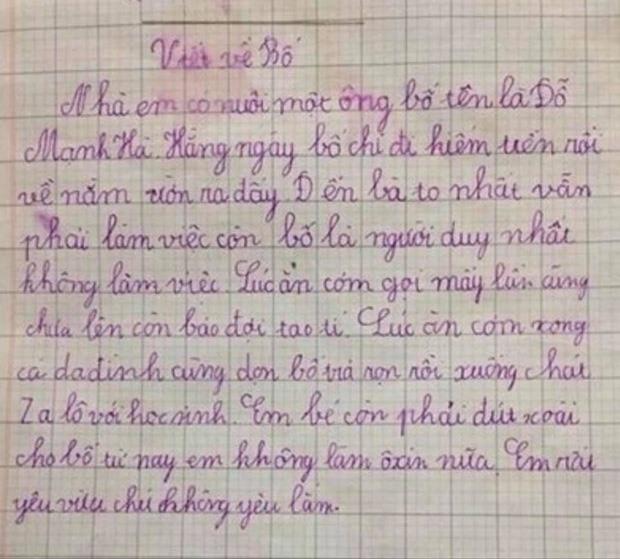 Viết về Bố
Nhà em có nuôi một ông bố tên là Đỗ
Mạnh Hà. Hằng ngày bố chỉ đi kiếm tiền rồi
về nằm ườn ra đấy. Đến bà to nhất vẫn
phải làm việc còn bố là người duy nhất
không làm việc. Lúc ăn cơm gọi mấy lần cũng
chưa lên còn bảo đợi tao tí. Lúc ăn cơm xong
cả da đình cùng dọn bố trả rọn rồi xuống chát
Za lô với học sinh. Em bé còn phải đút xoài
cho bố từ nay em không làm ôxin nữa. Em rất
yêu chứ không yêu lắm.